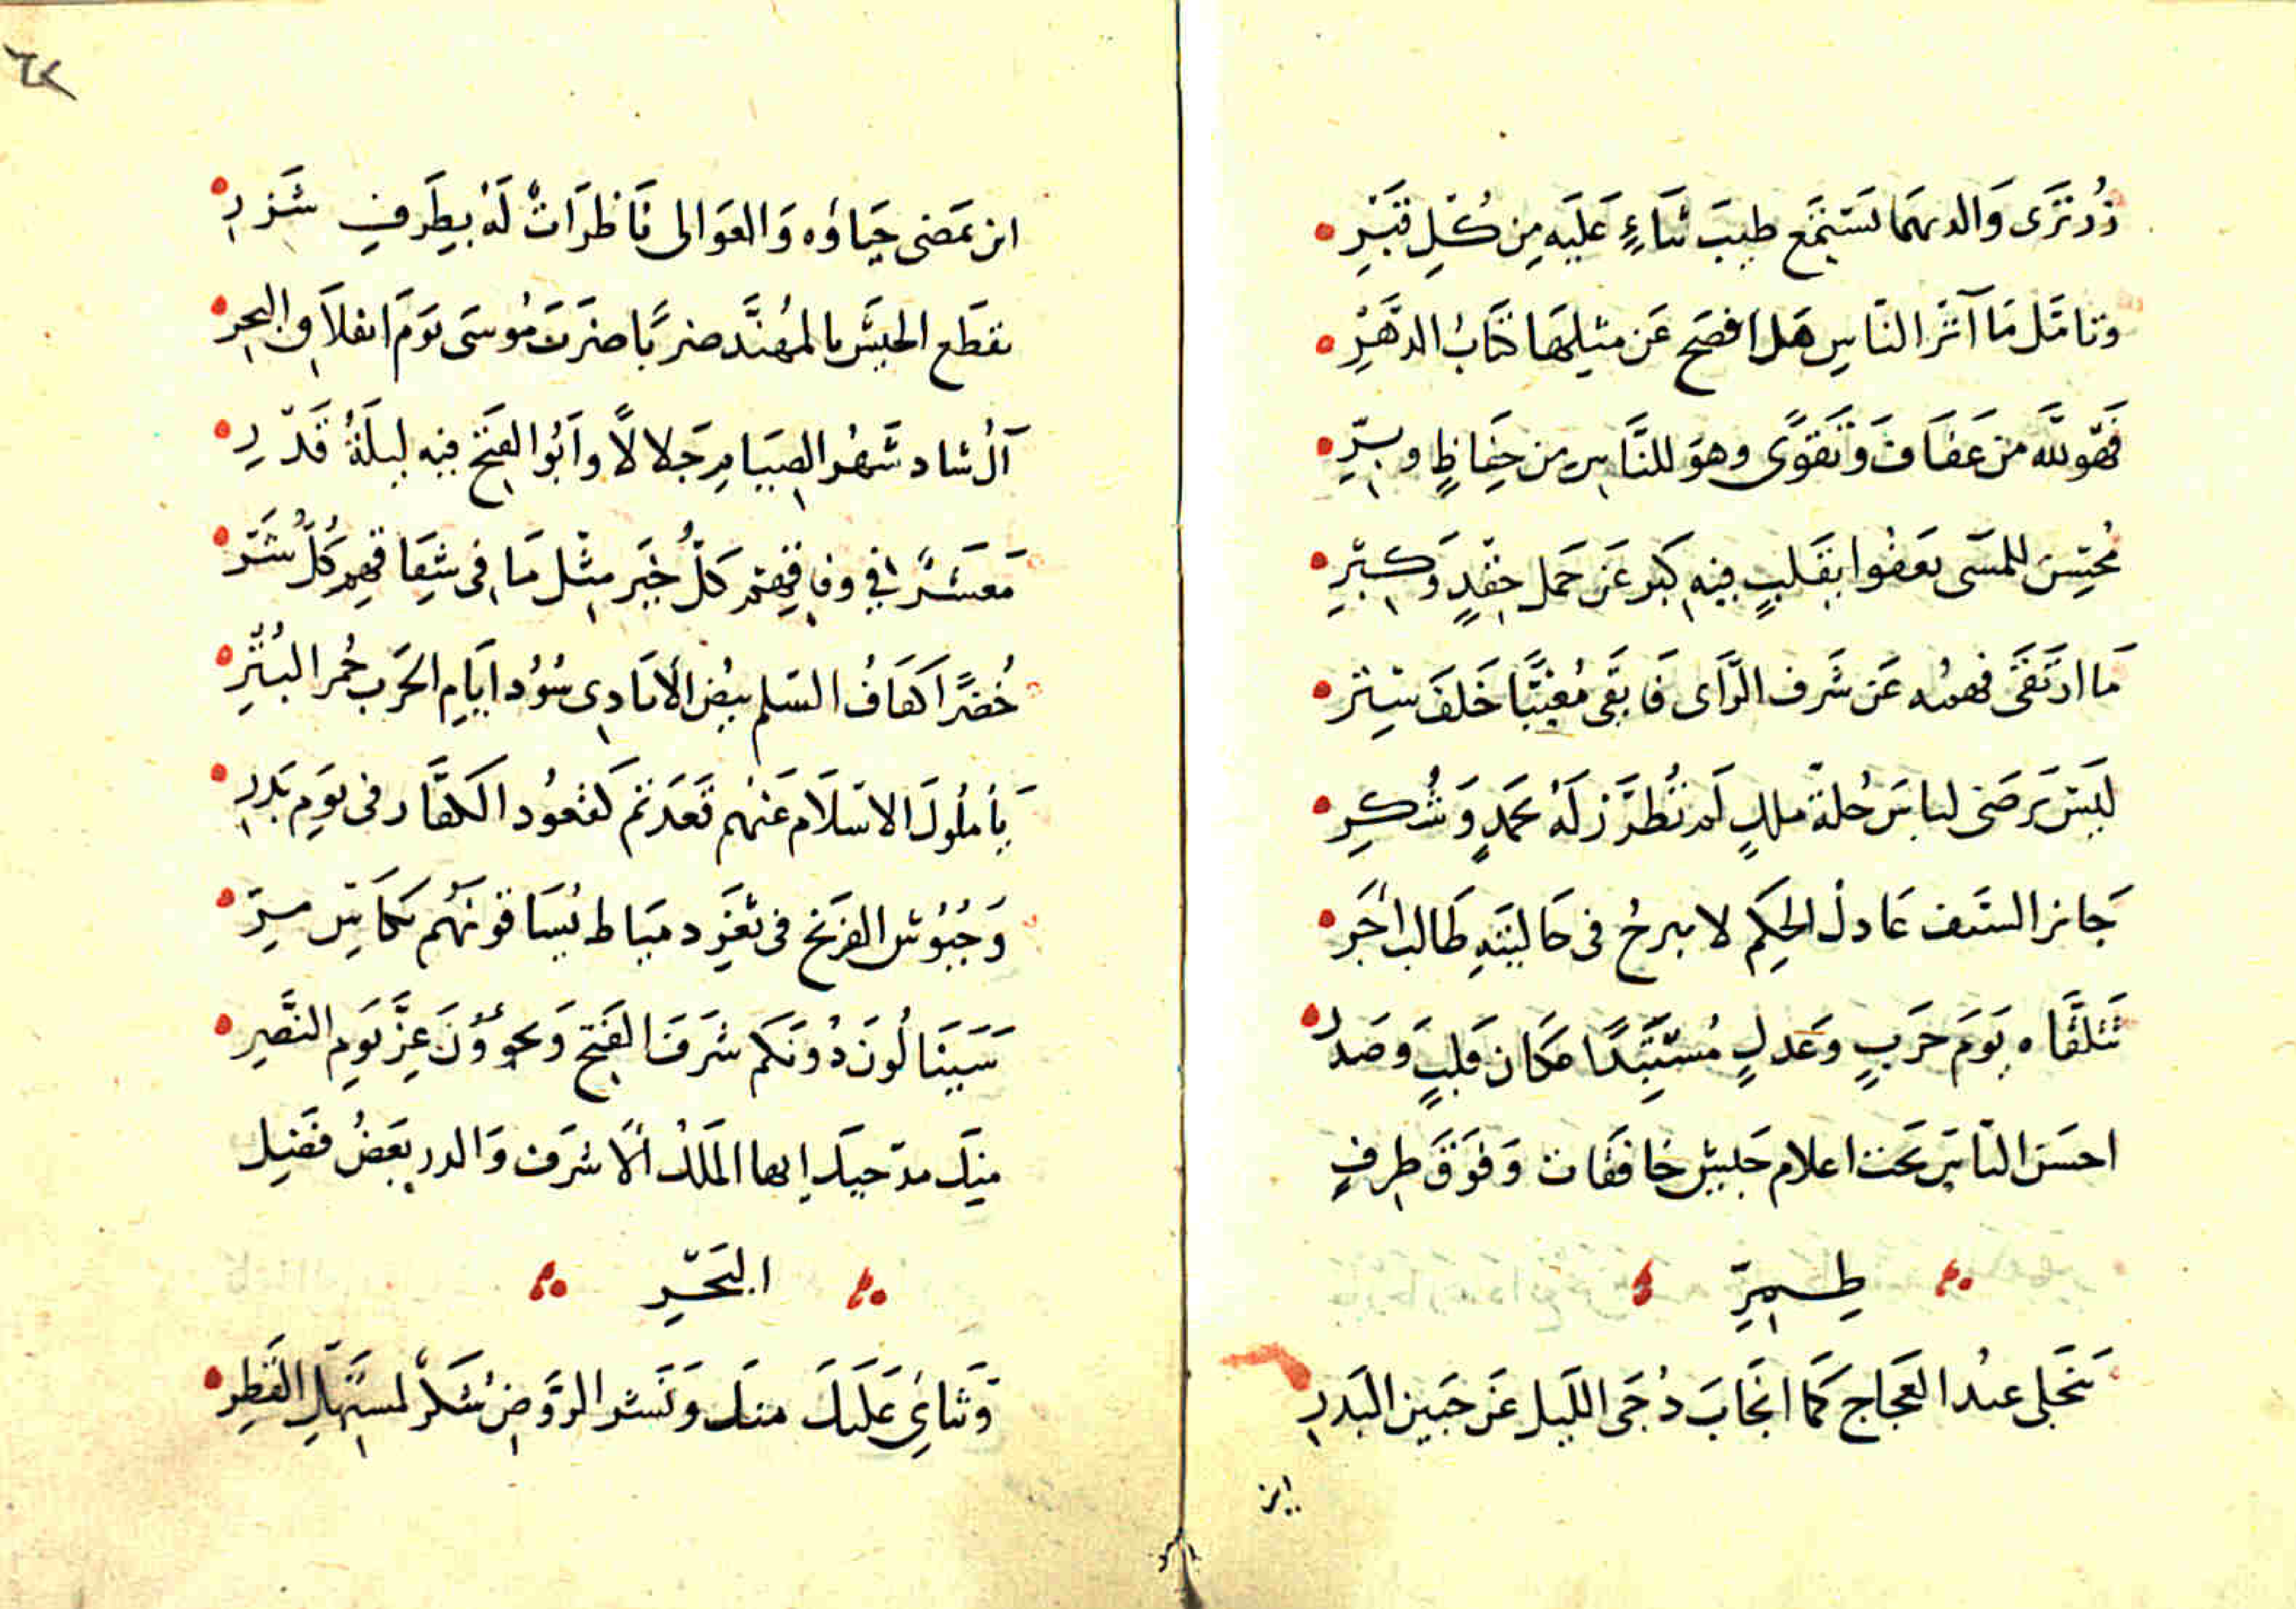 زُر ثَرَى والديهما تستمع طيبَ ثناءٍ عَلَيه مِن كُلِ قبرِ
وتامّل مَا آثر الناسِ هل افصَح عَن مثلِهَا كتابُ الدهْرِ
فَهو لله من عَفافٍ وَتَقوًى وهوَ للنَّاسِ من حِفَاظٍ وسِرِّ
مُحسِن للمسى يَعفوا بِقَلبٍ فيهِ كبر عَن حمل حِقدٍ وَكِبْرِ
مَا ارتقَى فهمُه عَن شَرف الرَّأى فَابقَى مُغيَّبًا خَلفَ سِتر
لَيسَ يَرضَى لباسَ حُلةَ ملكٍ لَم تُطرَّز لَهُ بحَمدٍ وَشُكرِ
جَائر السَيف عَادلُ الحِكَم لا يبرحُ فى حَاليَتهِ طَالب أجَرِ
تَتلقَّاه يَومَ حَربٍ وعَدلٍ مُستَبِدًا مكان قلبٍ وصَدرِ
احسَن الناسِ تحت اعلام جَيشٍ خافقَات وَفَوَق طِرفٍ
طِمِرِّ
ينجَلى عنهُ العجَاج كَمَا انجَابَ دُجَى اللَيل عَن جَبين البَدرِ
ان
٦٢
ان تمضى حَياؤه وَالعوَالى نَاظرَاتٌ لَهُ بِطَرفٍ شَزرِ
يقطَع الجيشَ بالمهُنَّد ضربًا ضربَ مُوسَى يَومَ انفلاَق البحرِ
آلُ شاد شَهرُ الصِيَامِ جَلالاً وأبُوا الفتح فيه ليلَةُ قَدْرِ
مَعشرٌ في وفاقِهم كلُّ خيَرٍ مِثل مَا فى شِقاقِهم كُلُّ شَر
خُضرُ اكنَافُ السّلم بيضُ الأيَادِى سُودُ ايَّامِ الحَرب حُمر البُترِ
يَا مُلُوكَ الاسلَام عَنهم قَعَدتم كقعُود الكفَّار فى يَومِ بَدرِ
وَجُيُوش الفرنج فى ثَغرِ دميَاط يُسَاقونهُم بكاسٍ مرِّ
سَيَنَالُونَ دُونَكم شرَفَ الفَتح وَيحوُونَ عِزَّ يَومِ النَّصرِ
مِنكَ مدحيكَ ايها المَلكُ الأشرَف وَالدر بعَضُ فضِل
البَحْرِ
وَثنايِ عَلَيكَ منكَ وَنَشر الروَّضِ شكرٌ لمستهِلِّ القَطِر